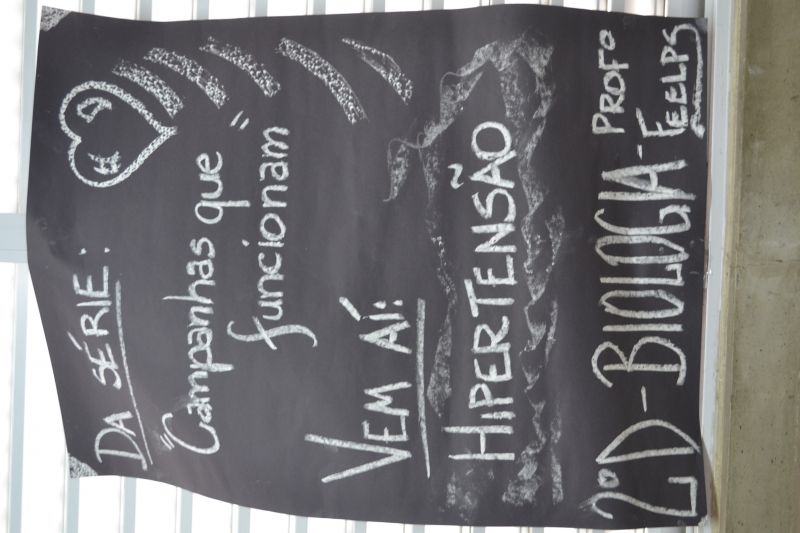 DA SÉRIE: H D
"Campanhas que
funcionam"
VEM AÍ:
HIPERTENSÃO
2ºD - BIOLOGIA - PROFº
FEELPS